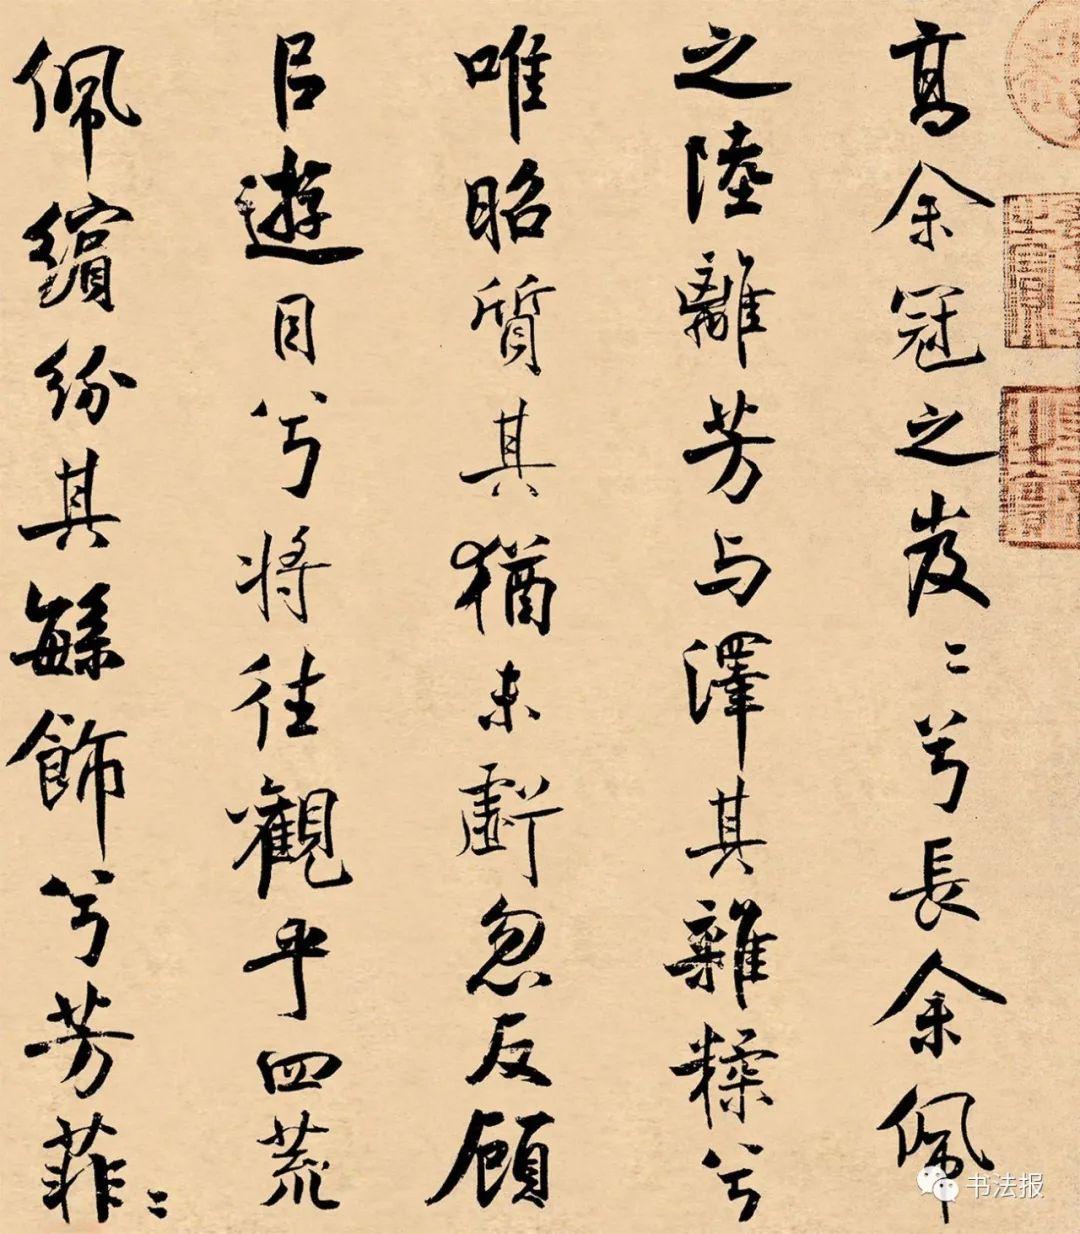 高余冠之岌〻兮長余佩
之陸離芳与澤其雜糅兮
唯昭質其猶未虧忽反顧
㠯遊目兮将往觀乎四荒
佩繽紛其緐飾兮芳菲〻
书法报